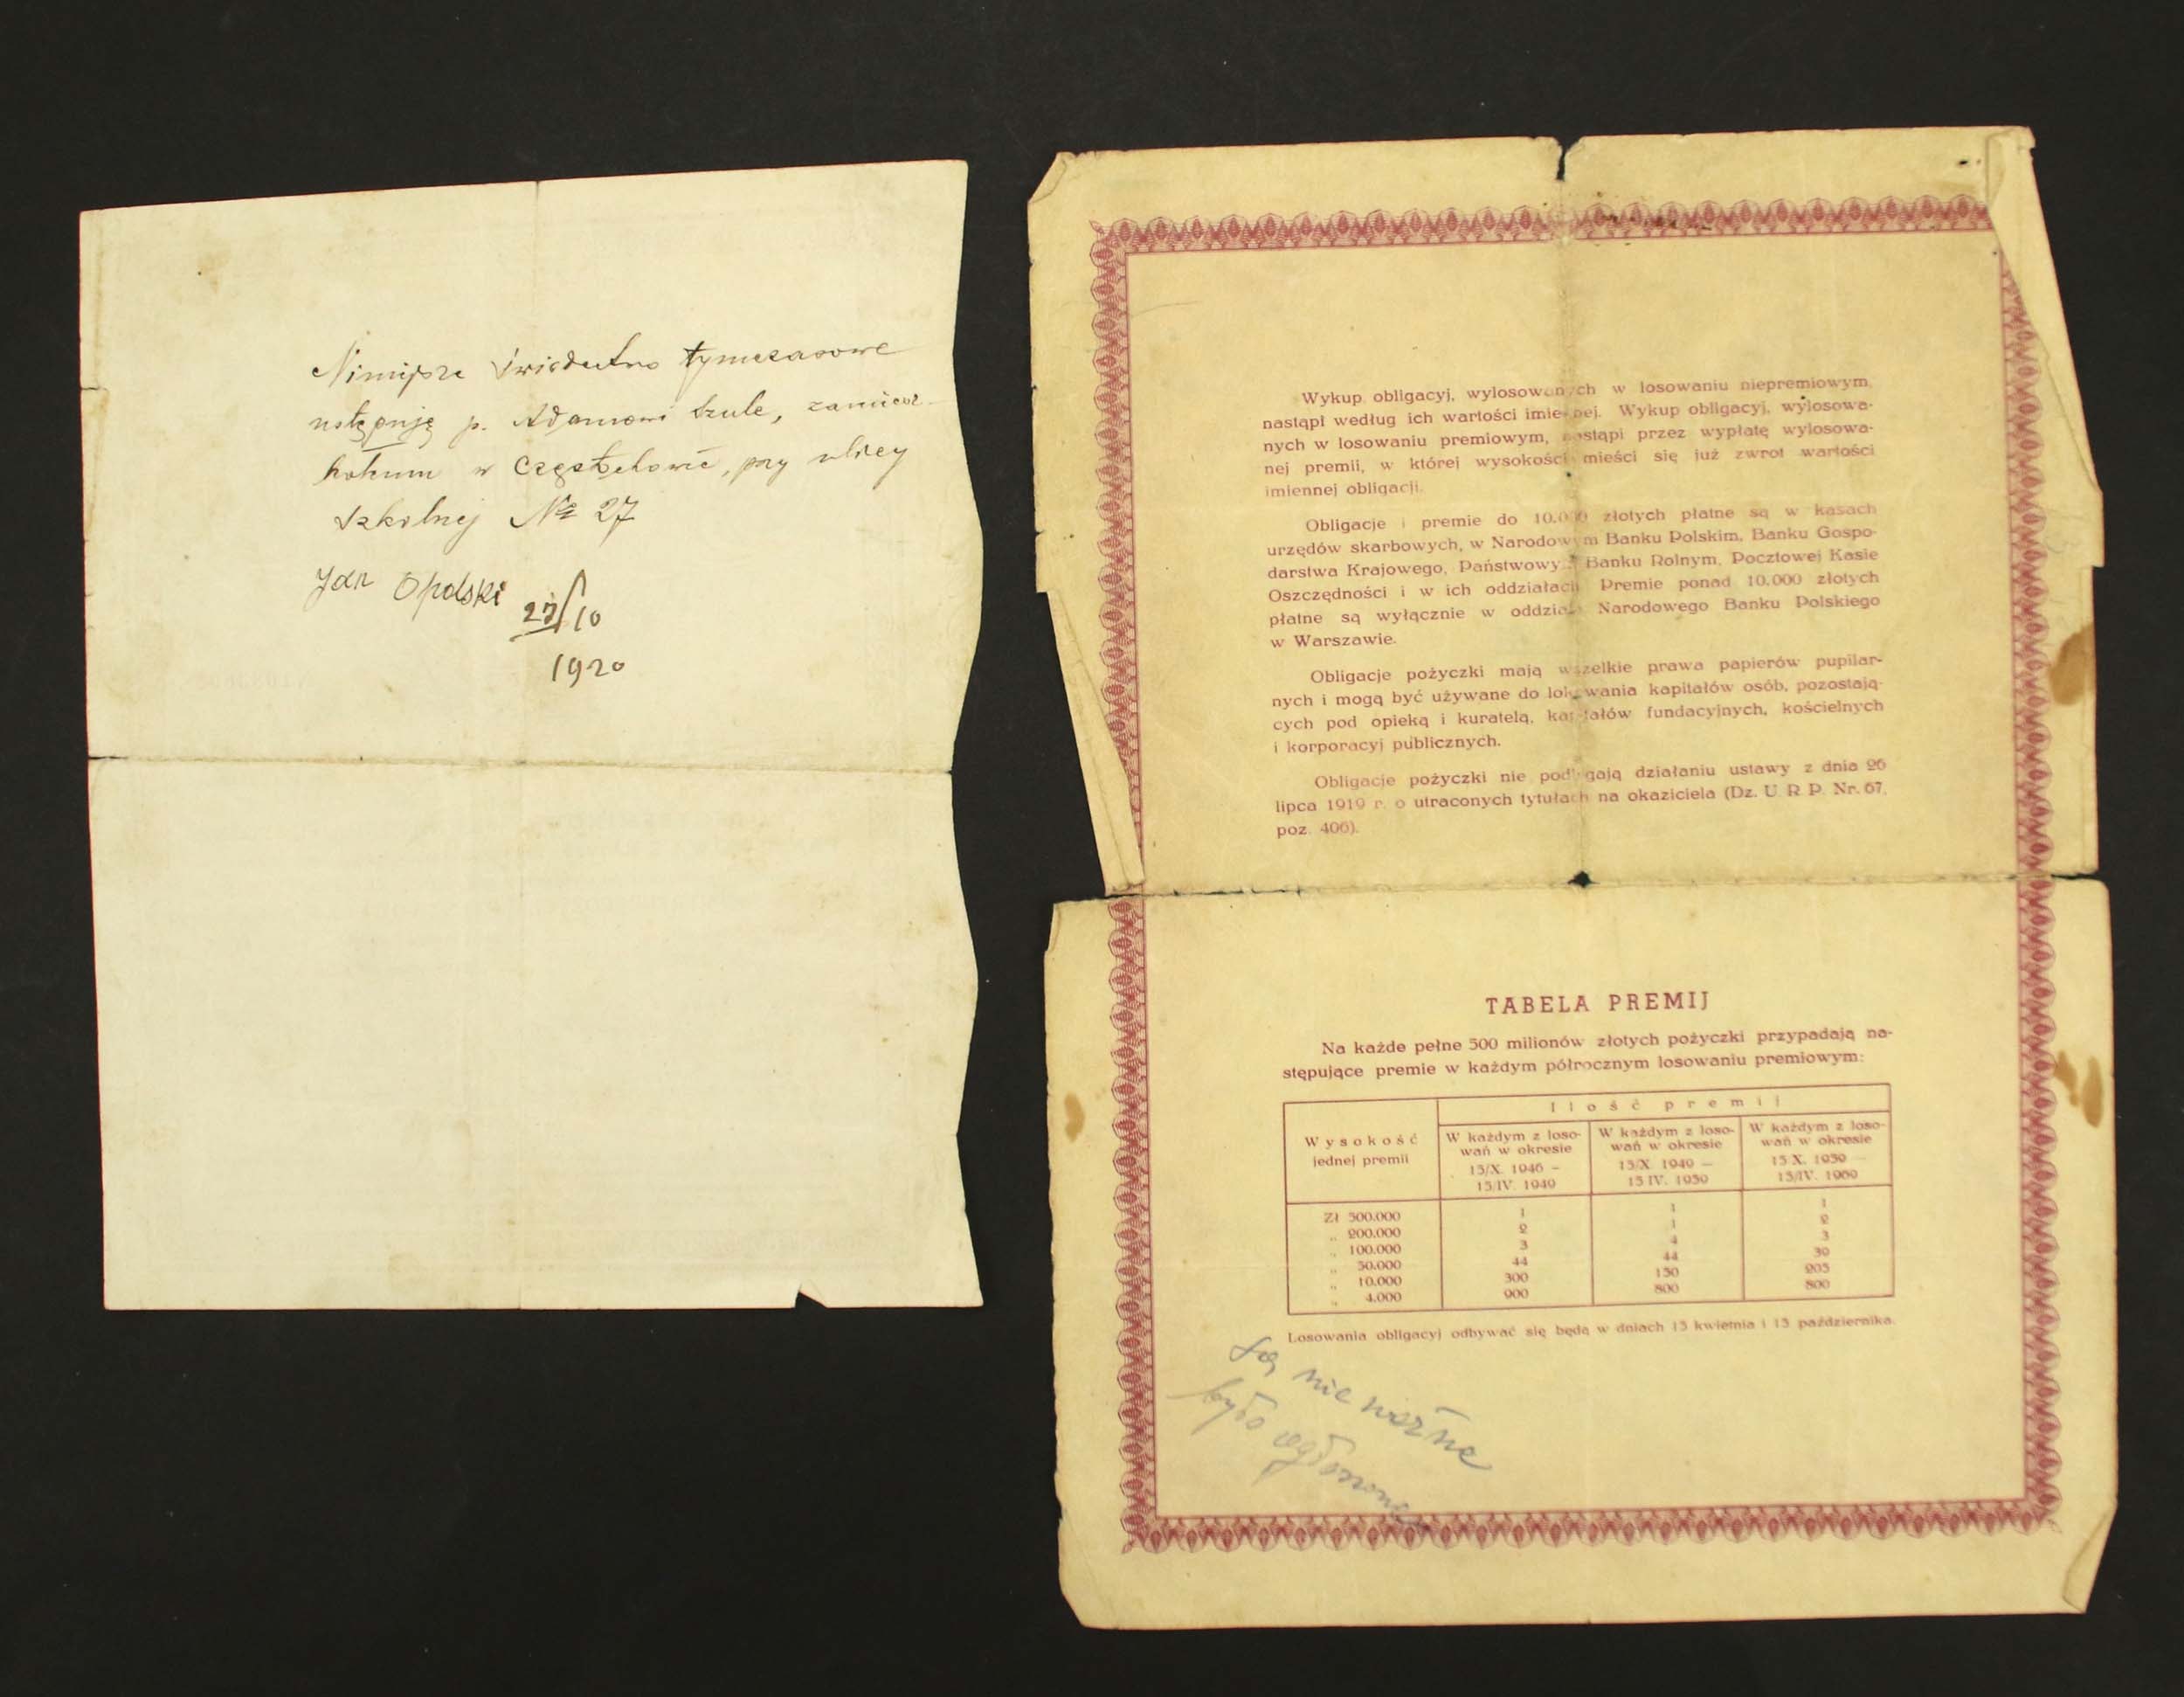 Niniejsze świadectwo tymczasowe
ustępuję p. Adamowi Szule, zamiesz-
kałemu w Częstochowie, przy ulicy
Szkolnej № 27
Jan Opolski
27/10
1920
Wykup obligacyj, wylosowanych w losowaniu niepremiowym,
nastąpi według ich wartości imiennej. Wykup obligacyj, wylosowa-
nych w losowaniu premiowym, nastąpi przez wypłatę wylosowa-
nej premii, w której wysokości mieści się już zwrot wartości
imiennej obligacji.
Obligacje i premie do 10.000 złotych płatne są w kasach
urzędów skarbowych, w Narodowym Banku Polskim, Banku Gospo-
darstwa Krajowego, Państwowym Banku Rolnym, Pocztowej Kasie
Oszczędności i w ich oddziałach. Premie ponad 10.000 złotych
płatne są wyłącznie w oddziale Narodowego Banku Polskiego
w Warszawie.
Obligacje pożyczki mają wszelkie prawa papierów pupilar-
nych i mogą być używane do lokowania kapitałów osób, pozostają-
cych pod opieką i kuratelą, kapitałów fundacyjnych, kościelnych
i korporacyj publicznych.
Obligacje pożyczki nie podlegają działaniu ustawy z dnia 26
lipca 1919 r. o utraconych tytułach na okaziciela (Dz. U. R. P. Nr. 67,
poz. 406).
TABELA PREMIJ
Na każde pełne 500 milionów złotych pożyczki przypadają na-
stępujące premie w każdym półrocznym losowaniu premiowym:
Ilość premij
Wysokość jednej premii
W każdym z loso-wań w okresie 15/X. 1946 – 15/IV. 1949
W każdym z loso-wań w okresie 15/X. 1949 – 15/IV. 1959
W każdym z loso-wań w okresie 15/X. 1959 – 15/IV. 1969
Zł 500.000 1 1 1
„ 200.000 2 1 2
„ 100.000 3 4 3
„ 50.000 44 44 30
„ 10.000 300 150 205
„ 4.000 900 800 800
Losowania obligacyj odbywać się będą w dniach 15 kwietnia i 15 października.
Są nie ważne
było ogłoszone